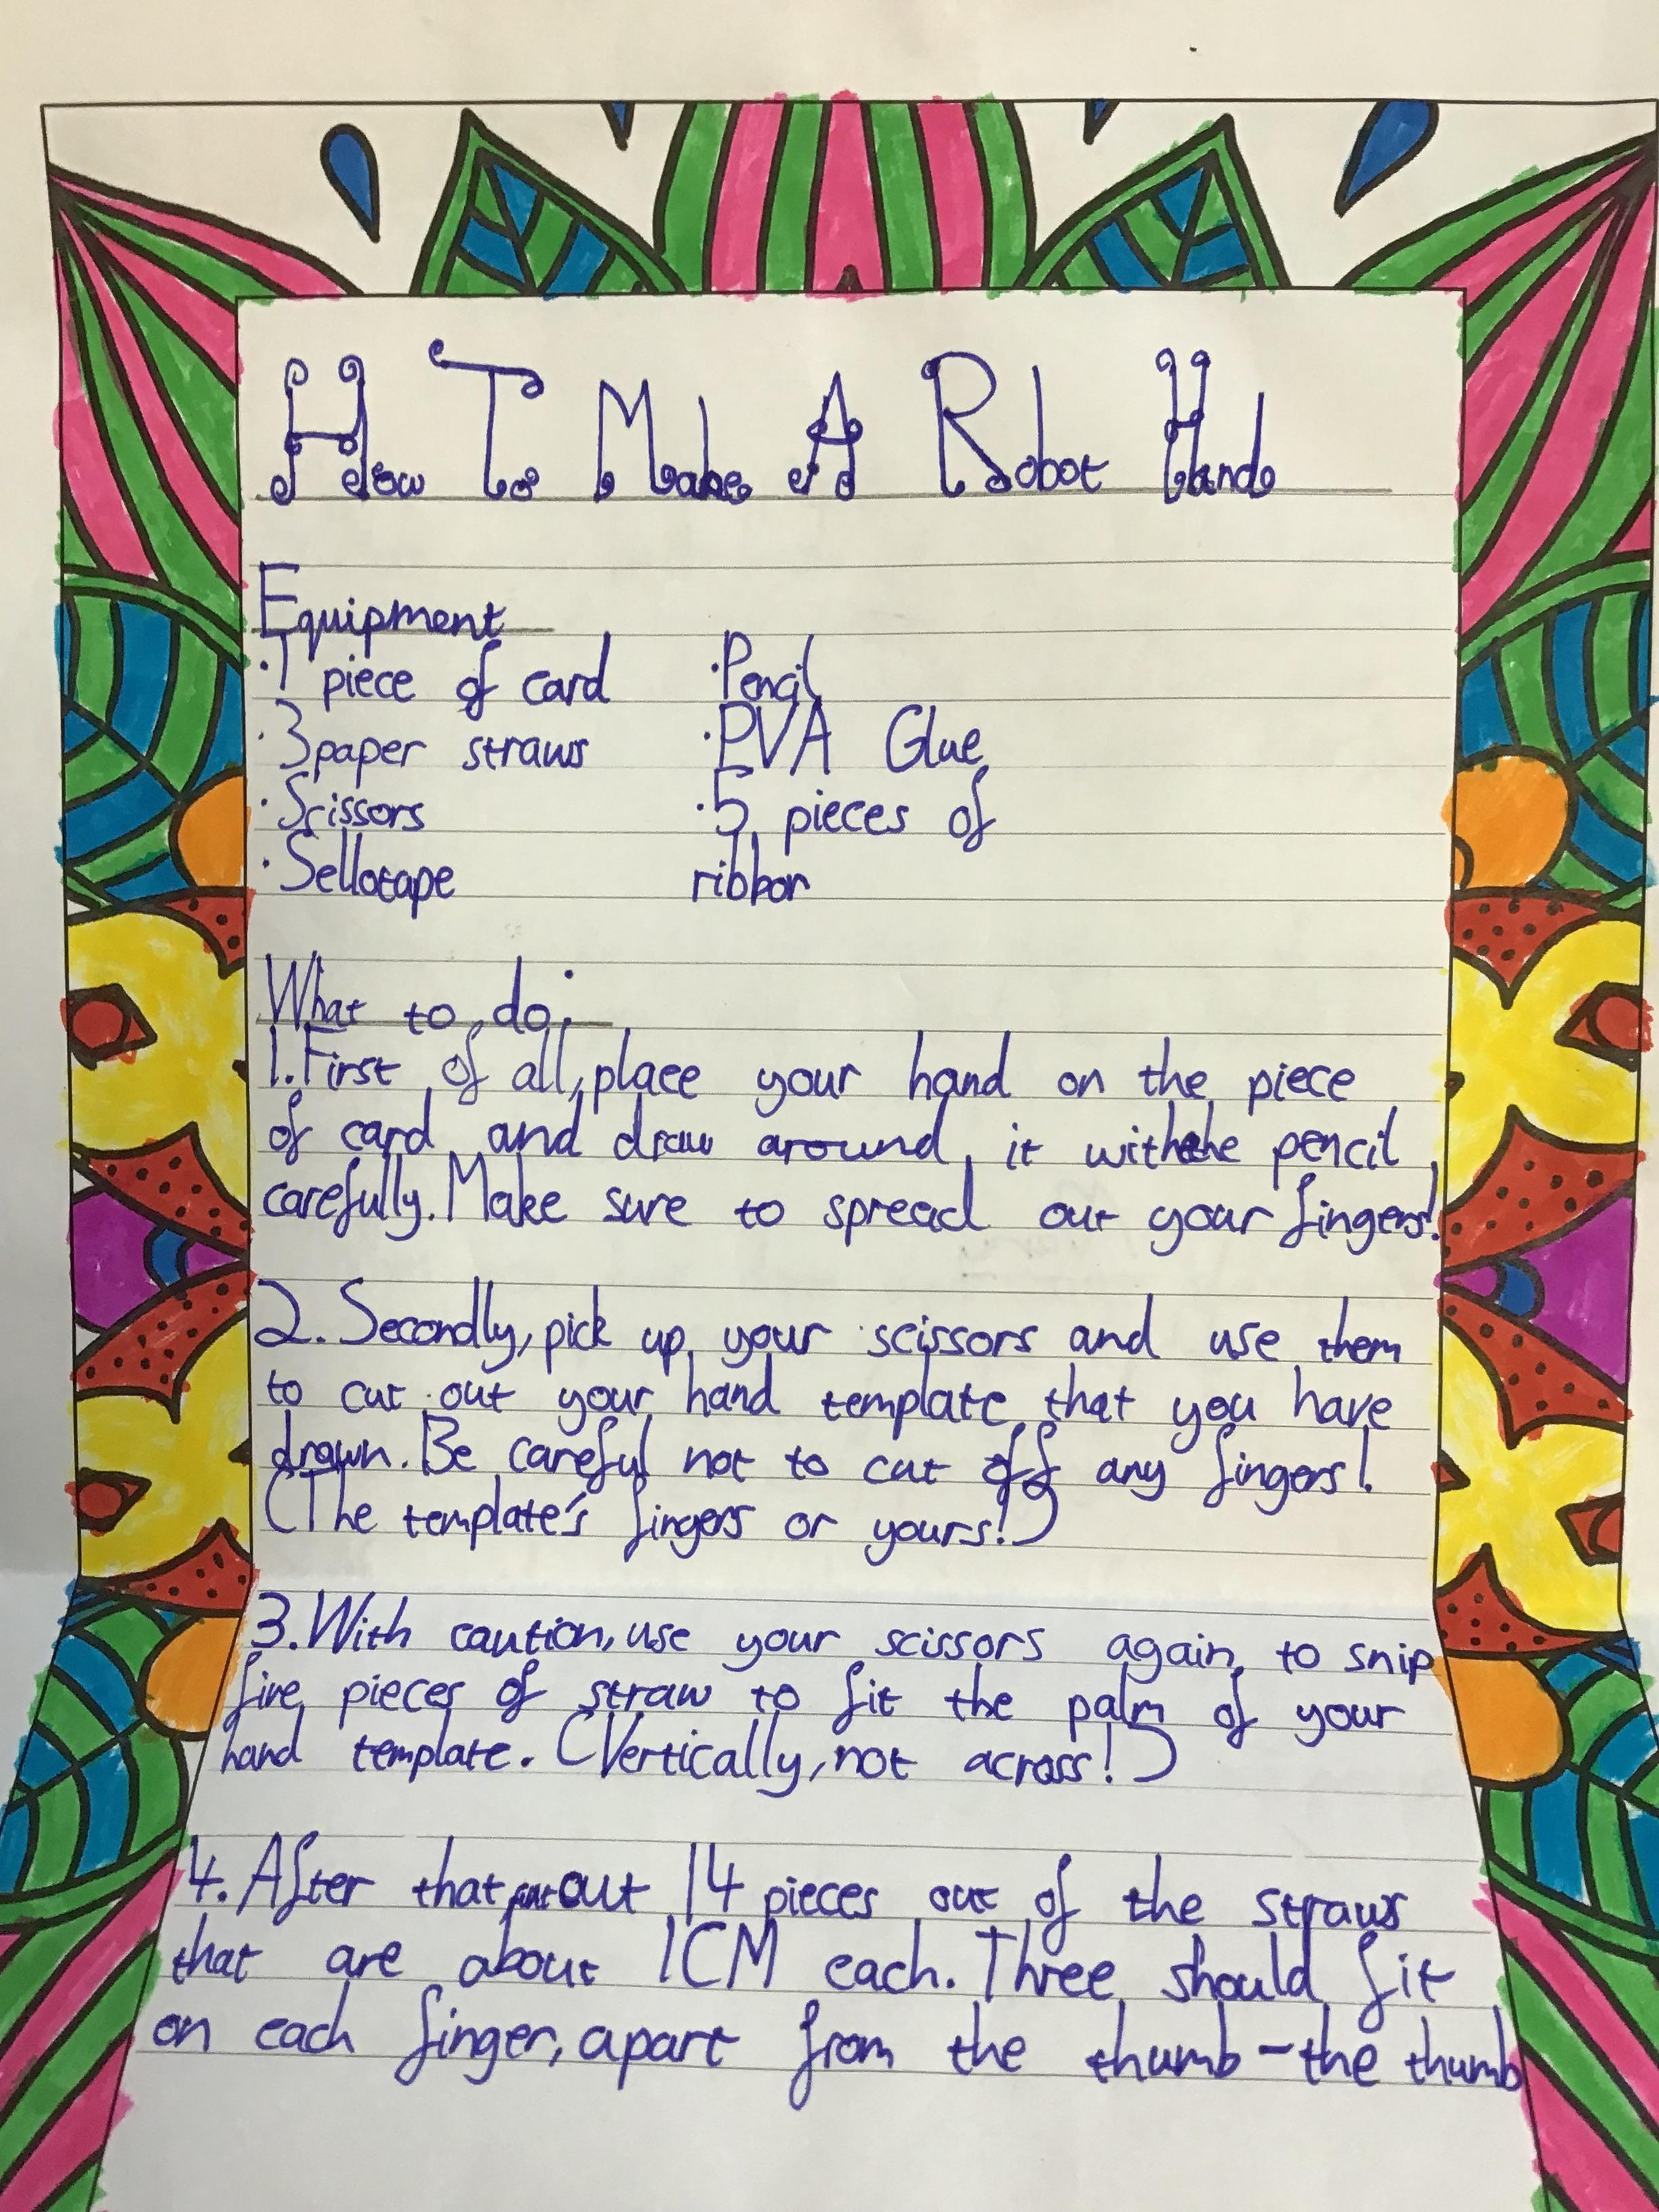 How To Make A Robot Hand
Equipment
·1 piece of card
·3 paper straws
·Scissors
·Sellotape
·Pencil
·PVA Glue
·5 pieces of
ribbon
What to do:
1. First of all, place your hand on the piece
of card and draw around it with the pencil
carefully. Make sure to spread out your fingers!
2. Secondly, pick up your scissors and use them
to cut out your hand template that you have
drawn. Be careful not to cut off any fingers!
(The template's fingers or yours!)
3. With caution, use your scissors again to snip
five pieces of straw to fit the palm of your
hand template. (Vertically, not across!)
4. After that, cut out 14 pieces out of the straws
that are about 1CM each. Three should fit
on each finger, apart from the thumb - the thumb